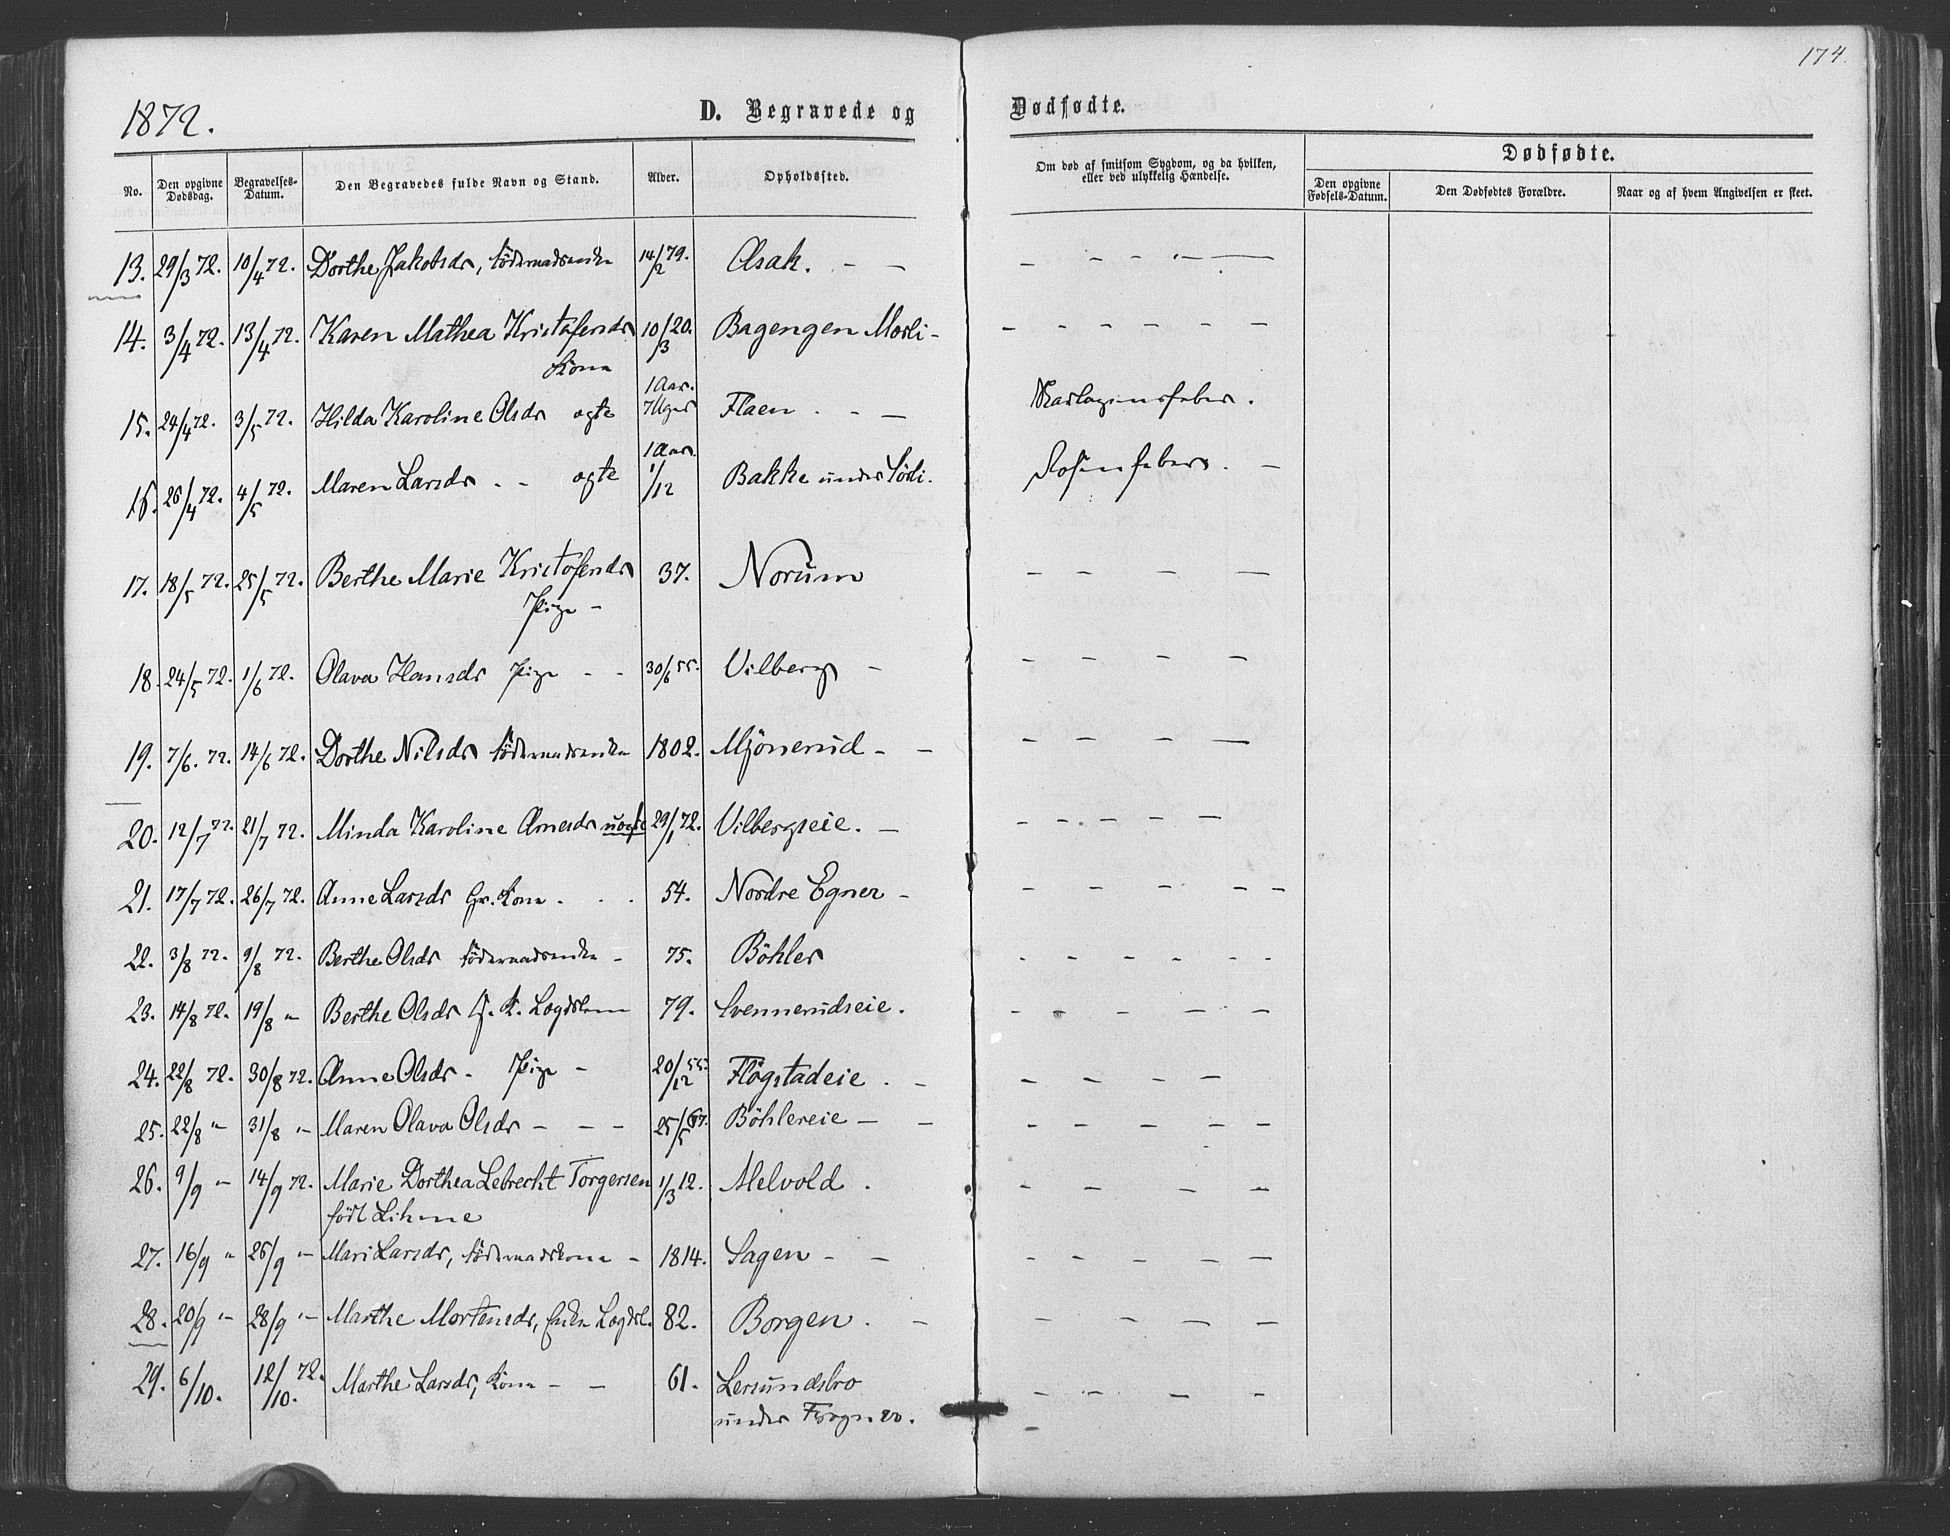 174.
1872.
D. Begravede og Dødfødte.
No. Den opgivne Dødsdag. Begravelses-Datum. Den Begravedes fulde Navn og Stand. Alder. Opholdssted. Om død af smitsom Sygdom, og da hvilken, eller ved ulykkelig Hændelse. Dødfødte.
Den opgivne Fødsels-Datum. Den Dødfødtes Forældre. Naar og af hvem Angivelsen er skeet.
13. 29/3 72. 10/4 72. Dorthe Jakobsdr, födernadsenke 14/2 79. Asak. - - - - - - -
14. 3/4 72. 13/4 72. Karen Mathea Kristofersdr 10/3 20. Bagengen Morli - - - - - - -
Kone
15. 24/4 72. 3/5 72. Hilda Karoline Olsdr ægte 1 Aar. 7 Uger Flaen . - - Skarlagensfeber.
16. 26/4 72. 4/5 72. Maren Larsdr - - ægte 1 Aar. 1/12 Bakke under Sörli. Rosenfeber. -
17. 18/5 72. 25/5 72. Berthe Marie Kristofersdr 37. Norum - - - -
Pige -
18. 24/5 72. 1/6 72. Olava Hansdr Pige - - 30/6 55. Vilberg - - - - -
19. 7/6. 72. 14/6 72. Dorthe Nilsdr födernadsenke 1802. Mjönerud - - - - - -
20. 12/7 72. 21/7 72. Minda Karoline Arnesdr uægte 29/1 72. Vilbergseie. - - - - - -
21. 17/7 72. 26/7 72. Anne Larsdr Gr. Kone . . . 54. Nordre Egner - - - - - -
22. 3/8 72. 9/8 72. Berthe Olsdr födernadsenke - 75. Böhler - - - - - -
23. 14/8 72. 19/8 " Berthe Olsdr G. K. Lægdslem 79. Svennerudseie. - - - - -
24. 22/8 72. 30/8 72. Anne Olsdr - Pige - 20/12 55. Flögstadeie . - - - - -
25. 22/8 " 31/8 " Maren Olava Olsdr - - - 25/5 67. Böhlereie - - - - - - -
26. 9/9 " 14/9 72. Marie Dorthea Lebrecht Torgersen 1/3 12. Melvold . - - - -
född Lihme
27. 16/9 " 26/9 " Mari Larsdr, födernadskone - 1814. Sagen - - - - - - -
28. 20/9 " 28/9 " Marthe Mortensdr, Enke Lægdsl. 82. Borgen . - - - - - -
29. 6/10. 12/10. 72. Marthe Larsdr, Kone - - 61. Lersundsbro - - - -
under Frogner.